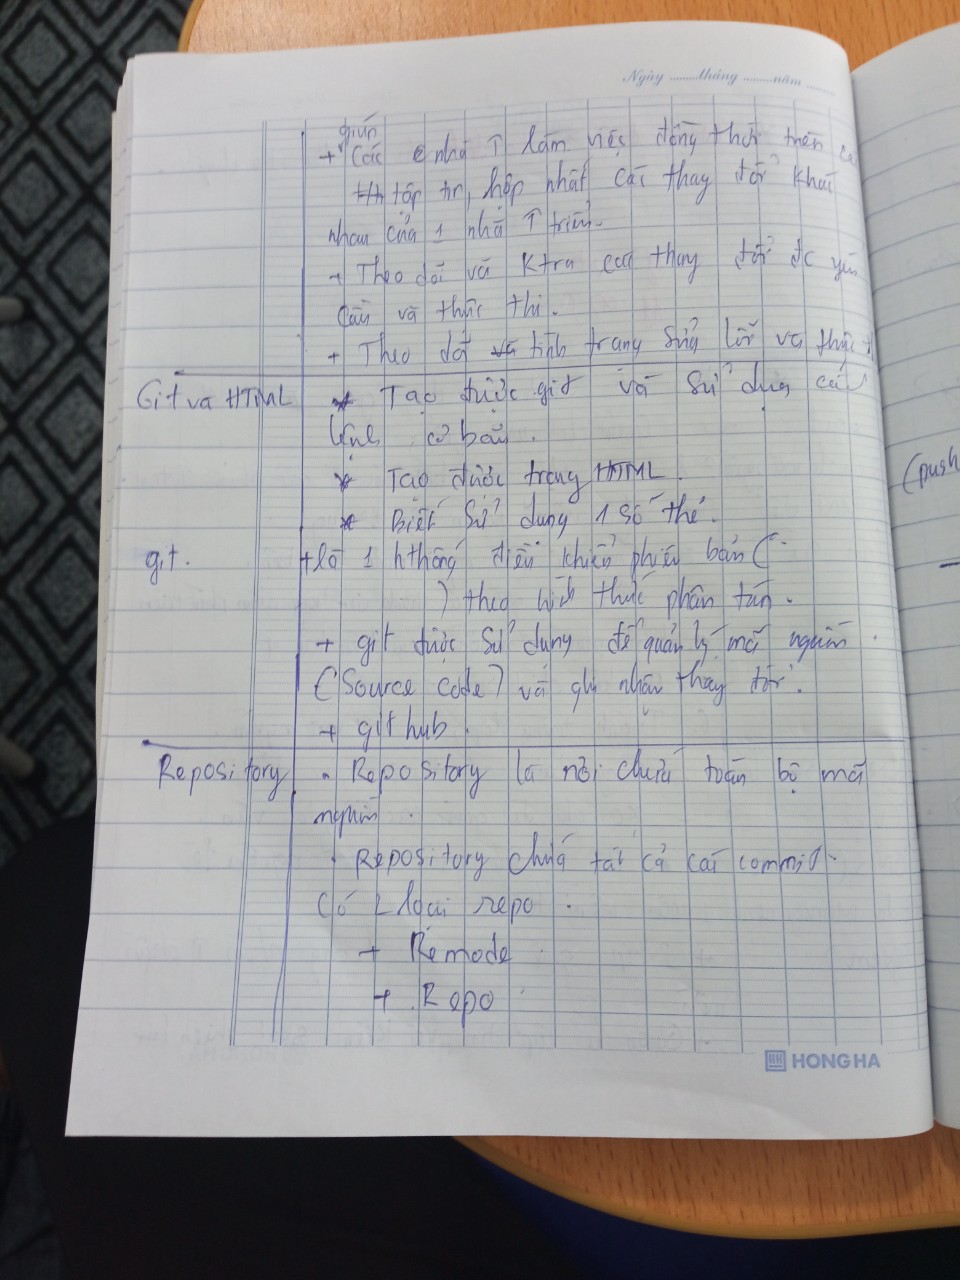 Ngày ........tháng ........năm ......
giúp
+ Các nhà ↑ làm việc đồng thời trên
tập tr, hợp nhất các thay đổi khác
nhau của 1 nhà ↑ triển.
+ Theo dõi và Ktra các thay đổi đc yêu
cầu và thực thi.
+ Theo dõi tình trạng sửa lỗi và thực
Git và HTML * Tạo được git và sử dụng các
lệnh cơ bản.
(push
* Tạo được trang HTML.
* Biết sử dụng 1 số thẻ.
git. + là 1 hthống điều khiển phiên bản (
) theo hình thức phân tán.
+ git được sử dụng để quản lý mã nguồn
(Source code) và ghi nhận thay đổi.
+ github.
Repository • Repository là nơi chứa toàn bộ mã
nguồn.
• Repository chứa tất cả các commit.
Có 2 loại repo.
+ Remode
+ Repo
HONG HA